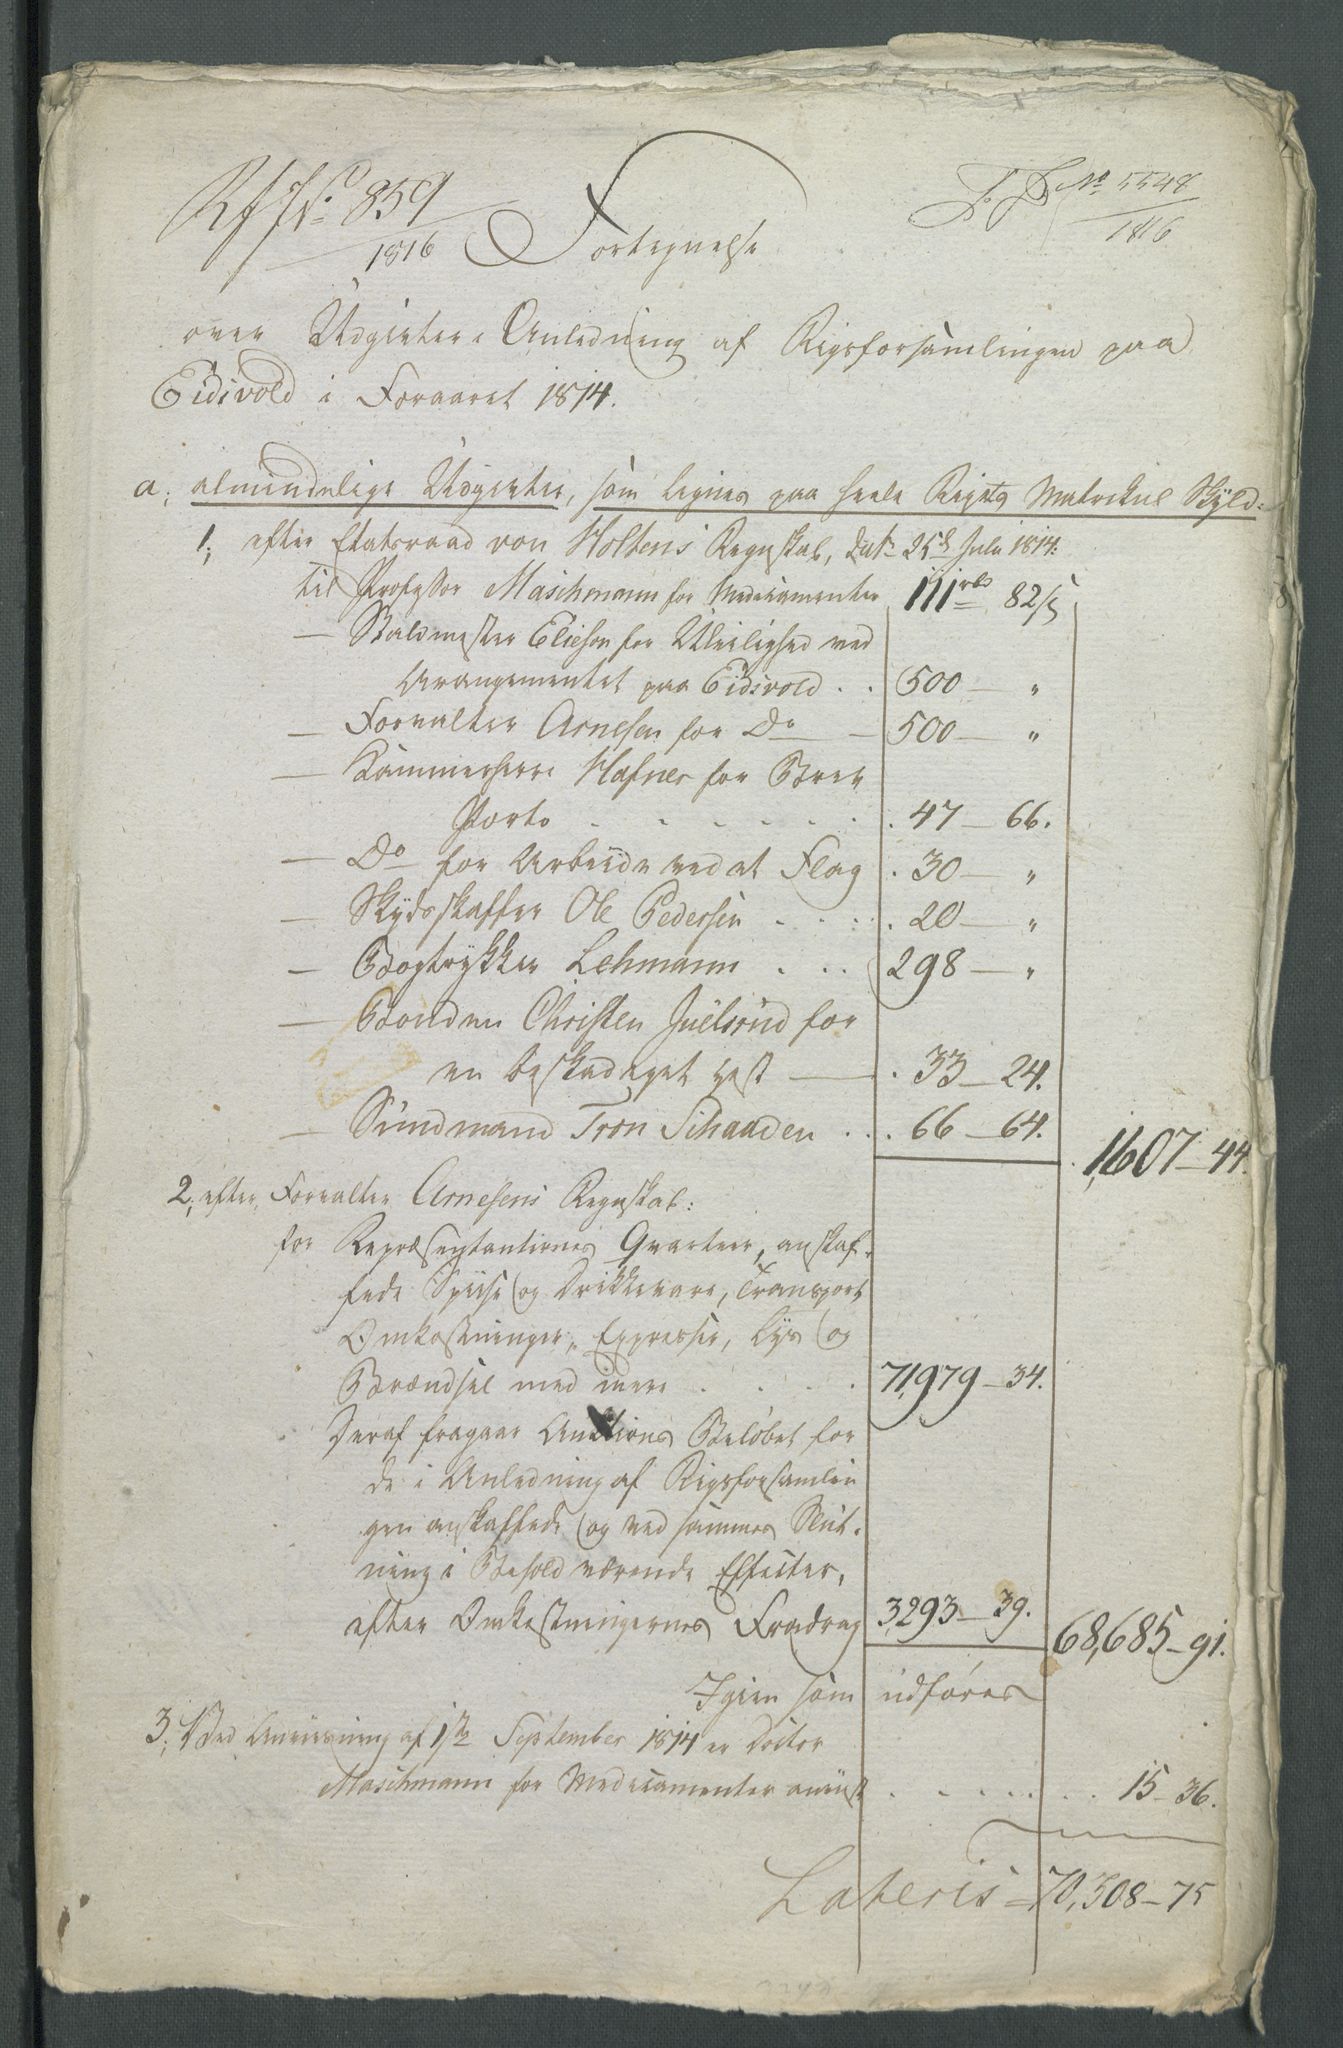 Rf No 859
1816
No 5548
1816
Fortegnelse
over Udgivter i Anledning af Rigsforsamlingen paa
Eidsvold i Foraaret 1814.
a, almindelige Udgivter, som lignes paa heele Rigets Matrikul Skyld:
1, efter Etatsraad von Holtens Regnskab, dat. 25d Juli 1814:
til Professor Maschmann for Medicamenter 111 rbd 82 s
— Staldmester Elieson for Uleilighed ved
Arangementet paa Eidsvold . . 500 — "
— Forvalter Arnesen for Do — 500 — "
— Kammerherre Hafner for Brev
Porto . . . . . . 47 — 66.
— Do for Arbeide ved at Flag . 30 — "
— Skydsskaffer Ole Pedersen . . . . 20 — "
— Bogtrykker Lehmann . . . 298 — "
— Bonden Christen Juelsrud for
en beskadiget Hest — . 33 — 24.
— Sundmand Tron Schaaden . . . 66 — 64.
1,607 — 44.
2, efter Forvalter Arnesens Regnskab:
for Repræsentanternes Qvarteer, anskaf-
fede Spiise og Drikkevare, Transport
Omkostninger, Expresser, Lys og
Brændsel med mere . . . . 71,979 — 34.
Deraf fragaar Auctions Beløbet for
de i Anledning af Rigsforsamlin
gen anskaffede og ved sammes Slut-
ning i Behold værende Effecter,
efter Omkostningernes Fradrag 3,293 — 39.
68,685 — 91.
Igien som udføres
3, Ved Anviisning af 1ste September 1814 er Doctor
Maschmann for Medicamenter anviist . . . . . . 15 — 36.
Lateris = 70,308 — 75